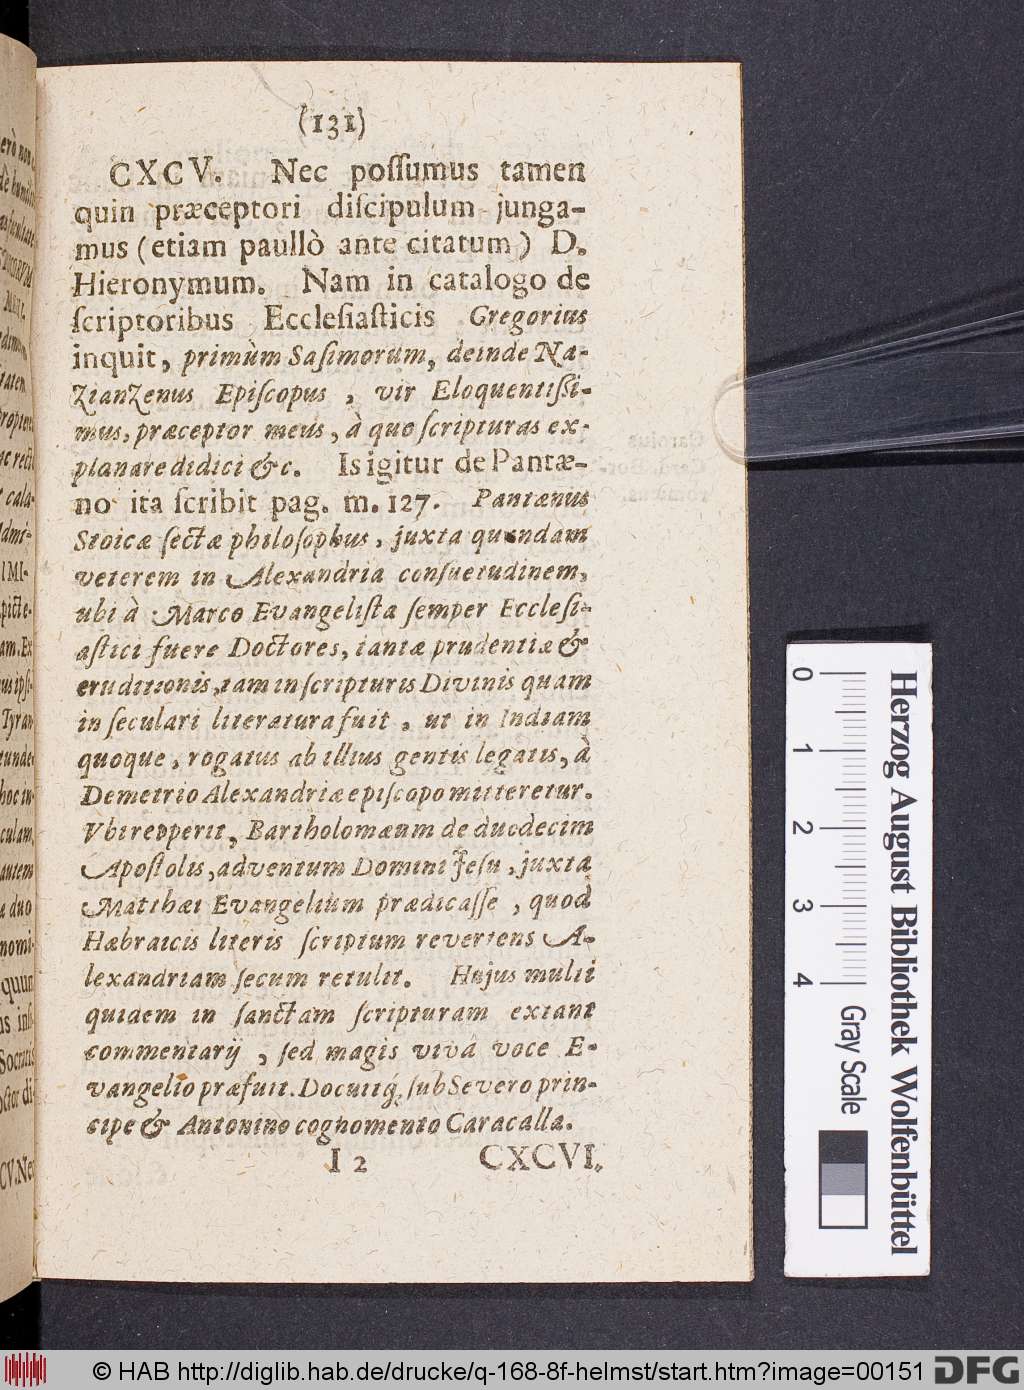 (131)
CXCV. Nec poſſumus tamen
quin præceptori diſcipulum junga-
mus (etiam paullò ante citatum) D.
Hieronymum. Nam in catalogo de
ſcriptoribus Eccleſiaſticis Gregorius
inquit, primùm Saſimorum, deinde Na-
zianzenus Epiſcopus, vir Eloquentiſſi-
mus, præceptor meus, à quo ſcripturas ex-
planare didici &c. Is igitur de Pantæ-
no ita ſcribit pag. m. 127. Pantænus
Stoicæ ſectæ philoſophus, juxta quandam
veterem in Alexandria conſuetudinem,
ubi à Marco Evangeliſta ſemper Eccleſi-
aſtici fuere Doctores, tantæ prudentiæ &
eruditionis, tam in ſcripturis Divinis quam
in ſeculari literatura fuit, ut in Indiam
quoque, rogatus ab illius gentis legatis, à
Demetrio Alexandriæ epiſcopo mitteretur.
Vbi repperit, Bartholomæum de duodecim
Apoſtolis, adventum Domini Jeſu, juxta
Matthæi Evangelium prædicaſſe, quod
Hæbraicis literis ſcriptum revertens A-
lexandriam ſecum retulit. Hujus multi
quidem in ſanctam ſcripturam extant
commentarij, ſed magis vivâ voce E-
vangelio præfuit. Docuitq́; ſub Severo prin-
cipe & Antonino cognomento Caracalla.
I 2 CXCVI.
0 1 2 3 4
Herzog August Bibliothek Wolfenbüttel
Gray Scale
© HAB http://diglib.hab.de/drucke/q-168-8f-helmst/start.htm?image=00151
DFG